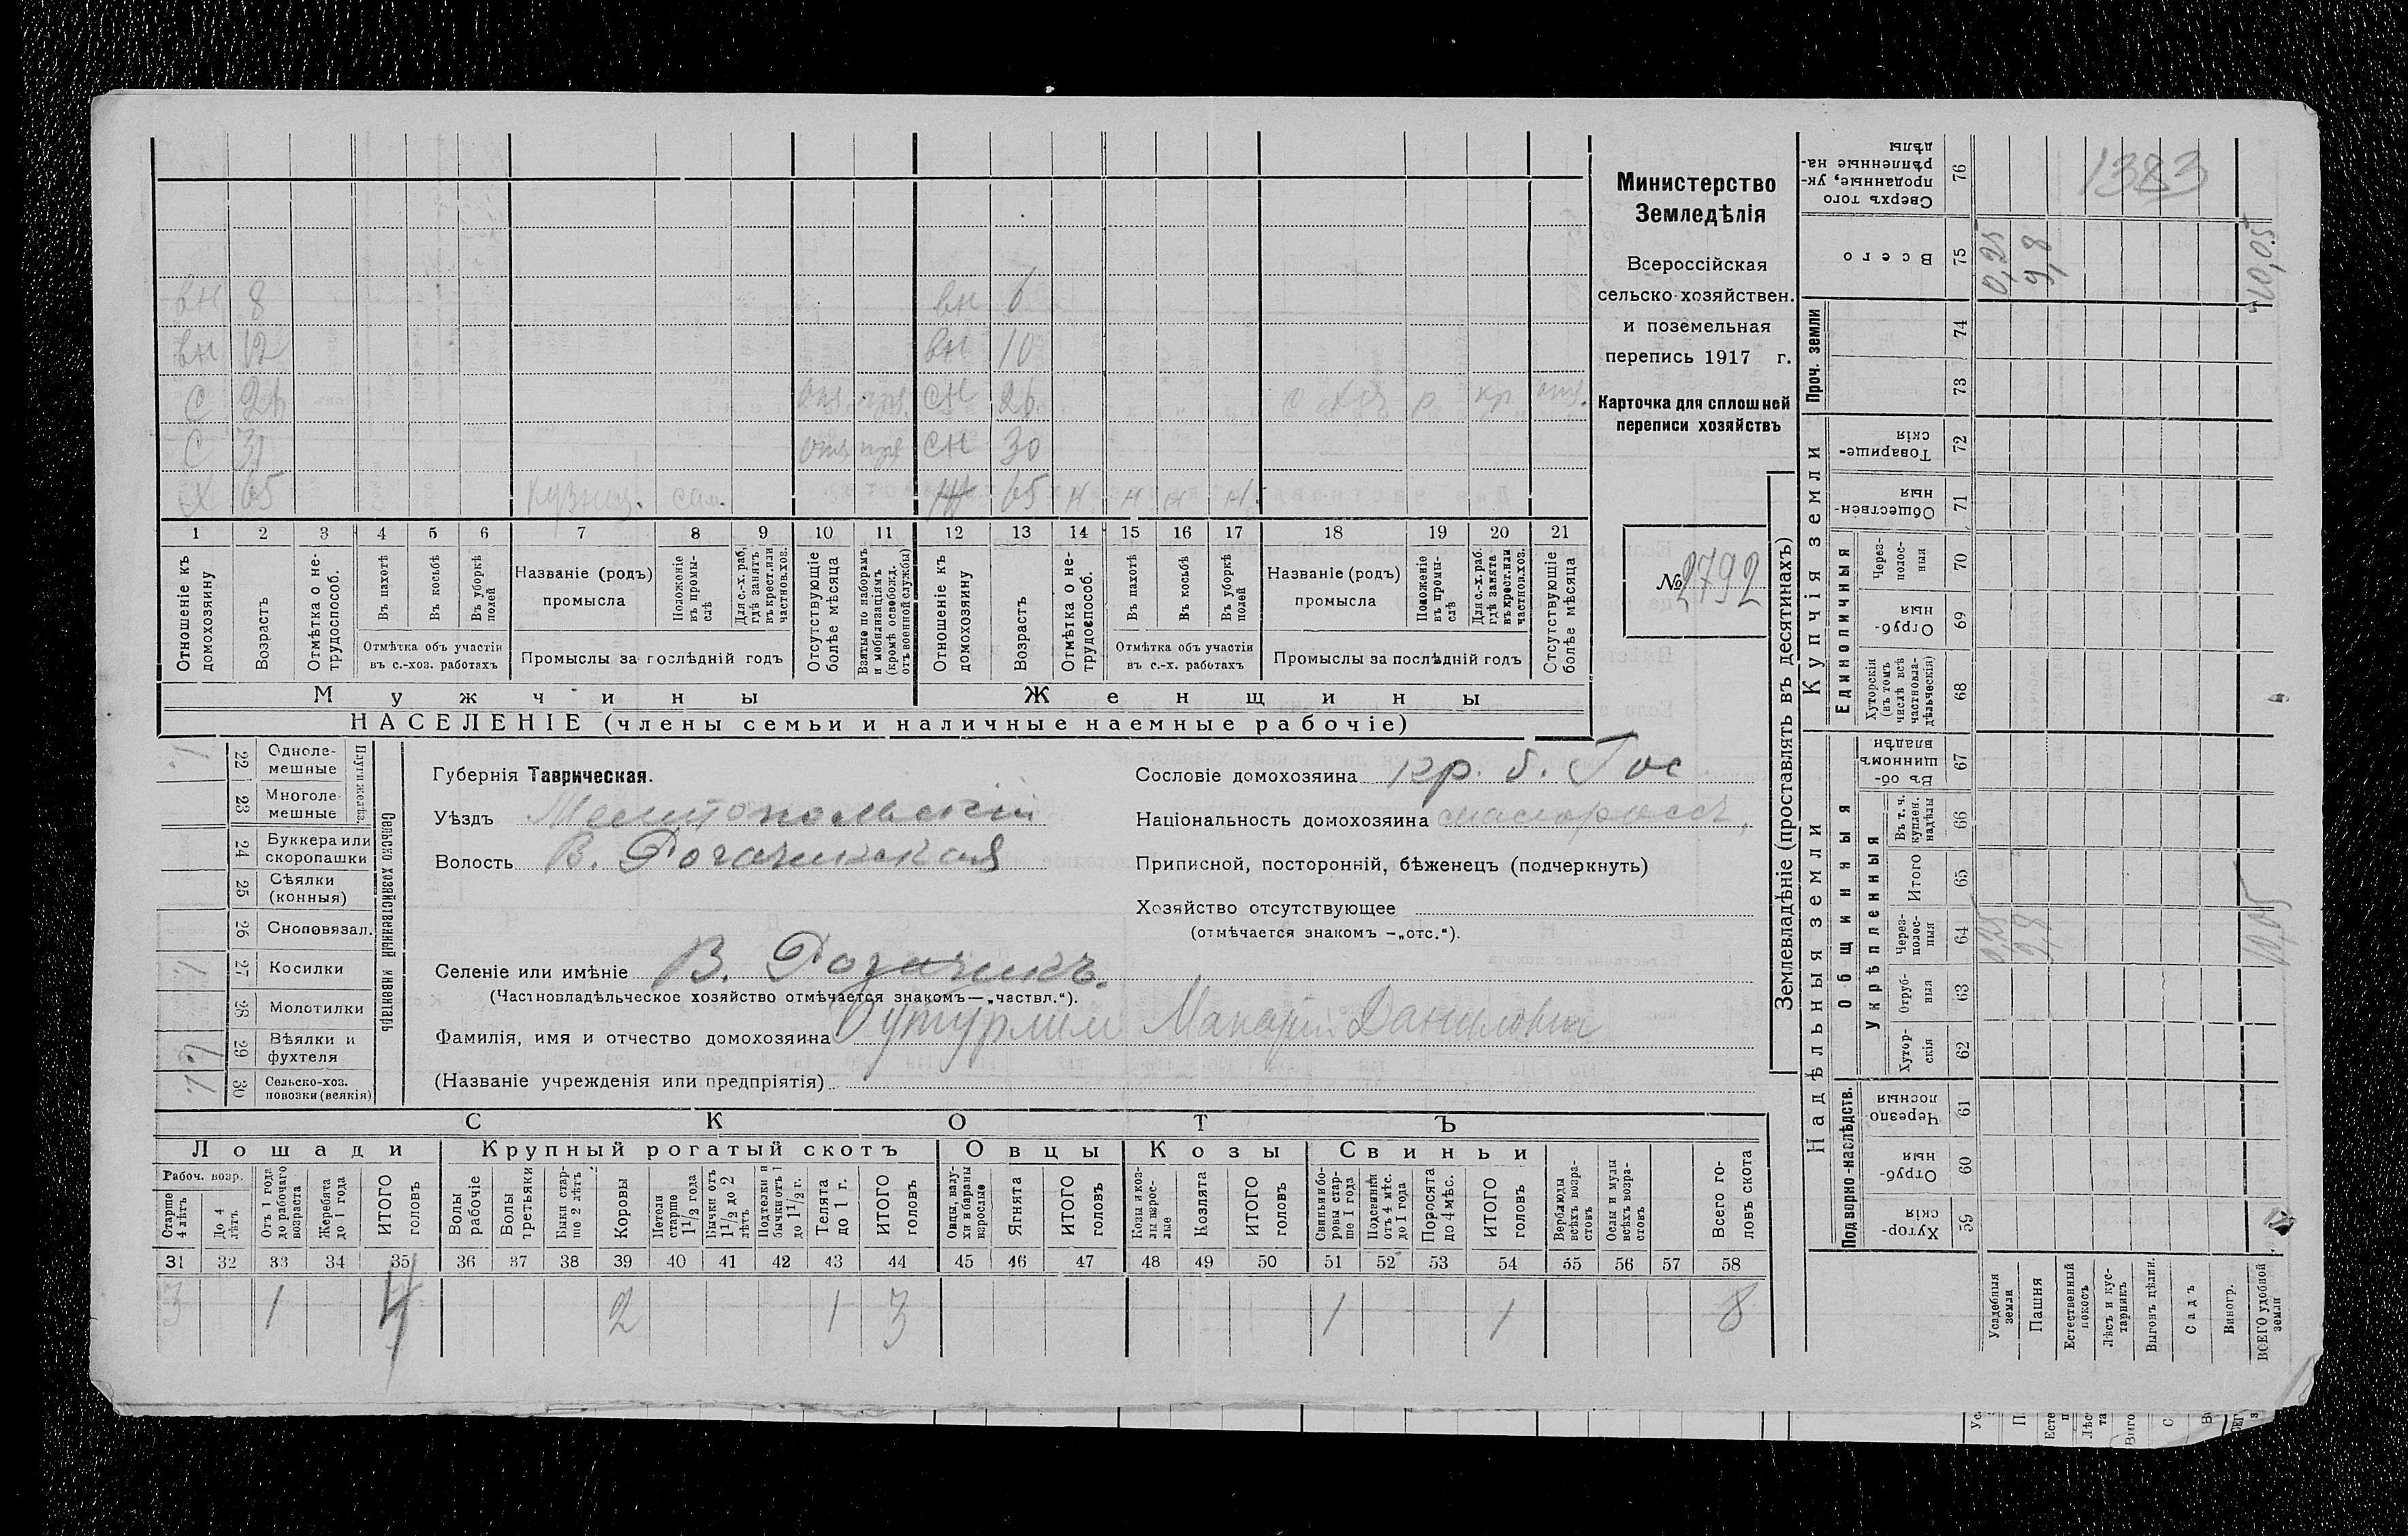 Министерство
Земледѣлія
Всероссійская
сельско-хозяйствен.
и поземельная
перепись 1917 г.
Карточка для сплошней
переписи хозяйствъ
№ 2792
вн 8 вн 6
вн 12 вн 10
с отс сн 26 р кр отс.
с 31 отс сн 30
х 65 кузнец. сам. ж 65 н н н н
1 2 3 4 5 6 7 8 9 10 11 12 13 14 15 16 17 18 19 20 21
Отношеніе къ домохозяину
Возрастъ
Отмѣтка о не-трудоспособ.
Въ пахотѣ
Въ косьбѣ
Въ уборкѣ полей
Отмѣтка объ участіи въ с.-хоз. работахъ
Названіе (родъ) промысла
Положеніе въ промы-слѣ
Для с.-х. раб. гдѣ занятъ въ крест. или частнов. хоз.
Промыслы за послѣдній годъ
Отсутствующіе болѣе мѣсяца
Взятые по наборамъ и мобилизаціямъ (кромѣ освобожд. отъ военной службы)
Отношеніе къ домохозяину
Возрастъ
Отмѣтка о не-трудоспособ.
Въ пахотѣ
Въ косьбѣ
Въ уборкѣ полей
Отмѣтка объ участіи въ с.-х. работахъ
Названіе (родъ) промысла
Положеніе въ промы-слѣ
Для с.-х. раб. гдѣ занята въ крест. или частнов. хоз.
Промыслы за послѣдній годъ
Отсутствующіе болѣе мѣсяца
Мужчины Женщины
НАСЕЛЕНІЕ (члены семьи и наличные наемные рабочіе)
Сельско хозяйственный инвентарь
Плуги желѣз.
22 Одноле-мешные 1
23 Многоле-мешные
24 Буккера или скоропашки
25 Сѣялки (конныя)
26 Сноповязал.
27 Косилки 1
28 Молотилки
29 Вѣялки и фухтеля
30 Сельско-хоз. повозки (всякія) 1
Губернія Таврическая.
Уѣздъ Мелитопольскій
Волость В. Рогачикская
Селеніе или имѣніе В. Рогачикъ.
(Частновладѣльческое хозяйство отмѣчается знакомъ—„частвл.“).
Фамилія, имя и отчество домохозяина Макарій Даниловичъ
(Названіе учрежденія или предпріятія)
Сословіе домохозяина кр. б. Гос
Національность домохозяина малороссъ,
Приписной, посторонній, бѣженецъ (подчеркнуть)
Хозяйство отсутствующее
(отмѣчается знакомъ –„отс.“).
СКОТЪ
Лошади Крупный рогатый скотъ Овцы Козы Свиньи
Рабоч. возр.
Старше 4 лѣтъ
До 4 лѣтъ
Отъ 1 года до рабочаго возраста
Жеребята до 1 года
ИТОГО головъ
Волы рабочіе
Волы третьяки
Быки стар-ше 2 лѣтъ
Коровы
Нетели старше 1 1/2 года
Бычки отъ 1 1/2 до 2 лѣтъ
Подтелки и бычки отъ 1 до 1 1/2 г.
Телята до 1 г.
ИТОГО головъ
Овцы, валу-хи и бараны взрослые
Ягнята
ИТОГО головъ
Козы и коз-лы взрос-лые
Козлята
ИТОГО головъ
Свиньи и бо-ровы стар-ше 1 года
Подсвинки отъ 4 мѣс. до 1 года
Поросята до 4 мѣс.
ИТОГО головъ
Верблюды всѣхъ возра-стовъ
Ослы и мулы всѣхъ возра-стовъ
Всего го-ловъ скота
31 32 33 34 35 36 37 38 39 40 41 42 43 44 45 46 47 48 49 50 51 52 53 54 55 56 57 58
3 1 4 2 1 3 1 1 8
Землевладѣніе (проставлять въ десятинахъ)
Надѣльныя земли Купчія земли Проч. земли
Подворно-наслѣдств.
Общинныя
Укрѣпленныя
Единоличныя
Хутор-скія 59
Отруб-ныя 60
Черезпо лосныя 61
Хутор-скія 62
Отруб-ныя 63
Через-полос-ныя 64
Итого 65
Въ т. ч. куплен. надѣлы 66
Въ об-щинномъ владѣн 67
Хуторскія (въ томъ числѣ всѣ частновла-дѣльческія) 68
Отруб-ныя 69
Через-полос-ныя 70
Обществен-ныя 71
Товарище-скія 72
73
74
Всего 75
Сверхъ того проданные, ук-рѣпленные на-дѣлы 76
Усадебныя земли 0,25 0,25
Пашня 9,8 9,8
Естественный покосъ
Лѣсъ и кус-тарникъ
Выгонъ цѣлин.
Садъ
Виногр.
ВСЕГО удобной земли 10,05 10,05
1383